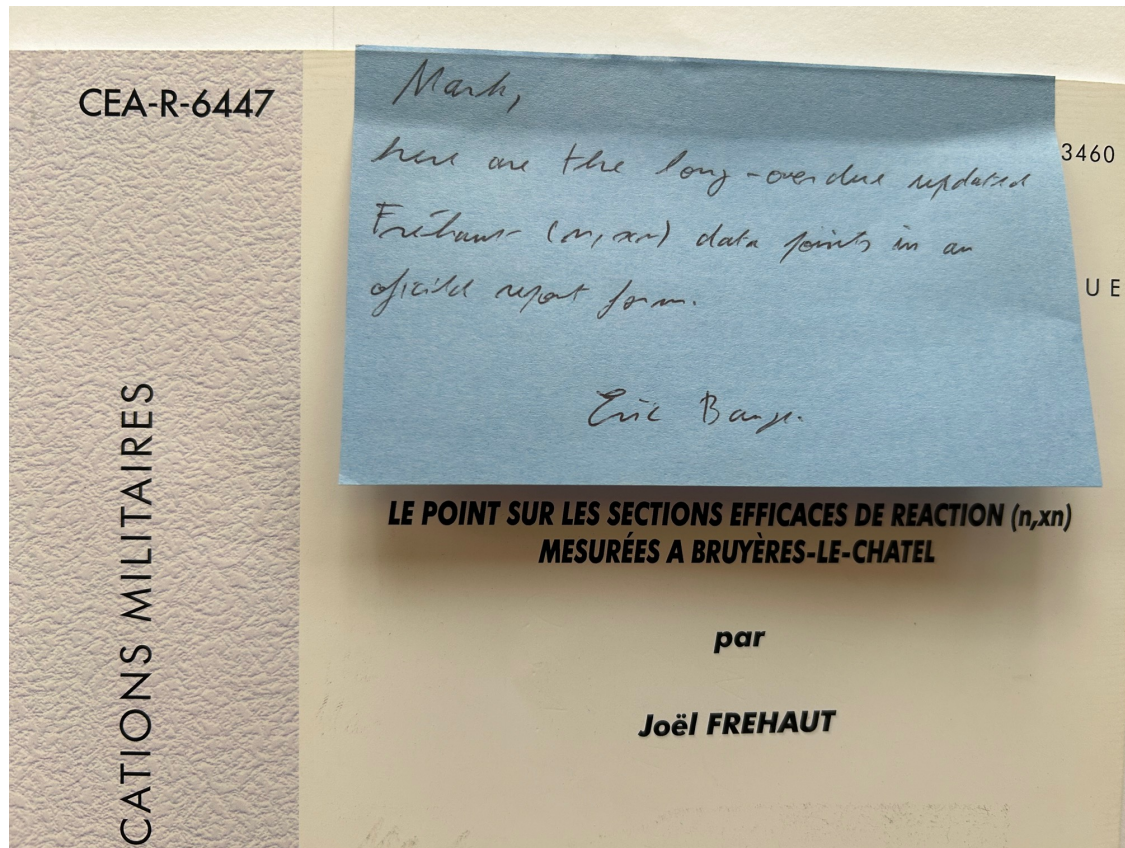 CEA-R-6447
Mark,
here are the long-overdue updated
Fréhaut (n,xn) data points in an
oficial report form.
Eric Bauge.
3460
UE
CATIONS MILITAIRES
LE POINT SUR LES SECTIONS EFFICACES DE REACTION (n,xn)
MESURÉES A BRUYÈRES-LE-CHATEL
par
Joël FREHAUT